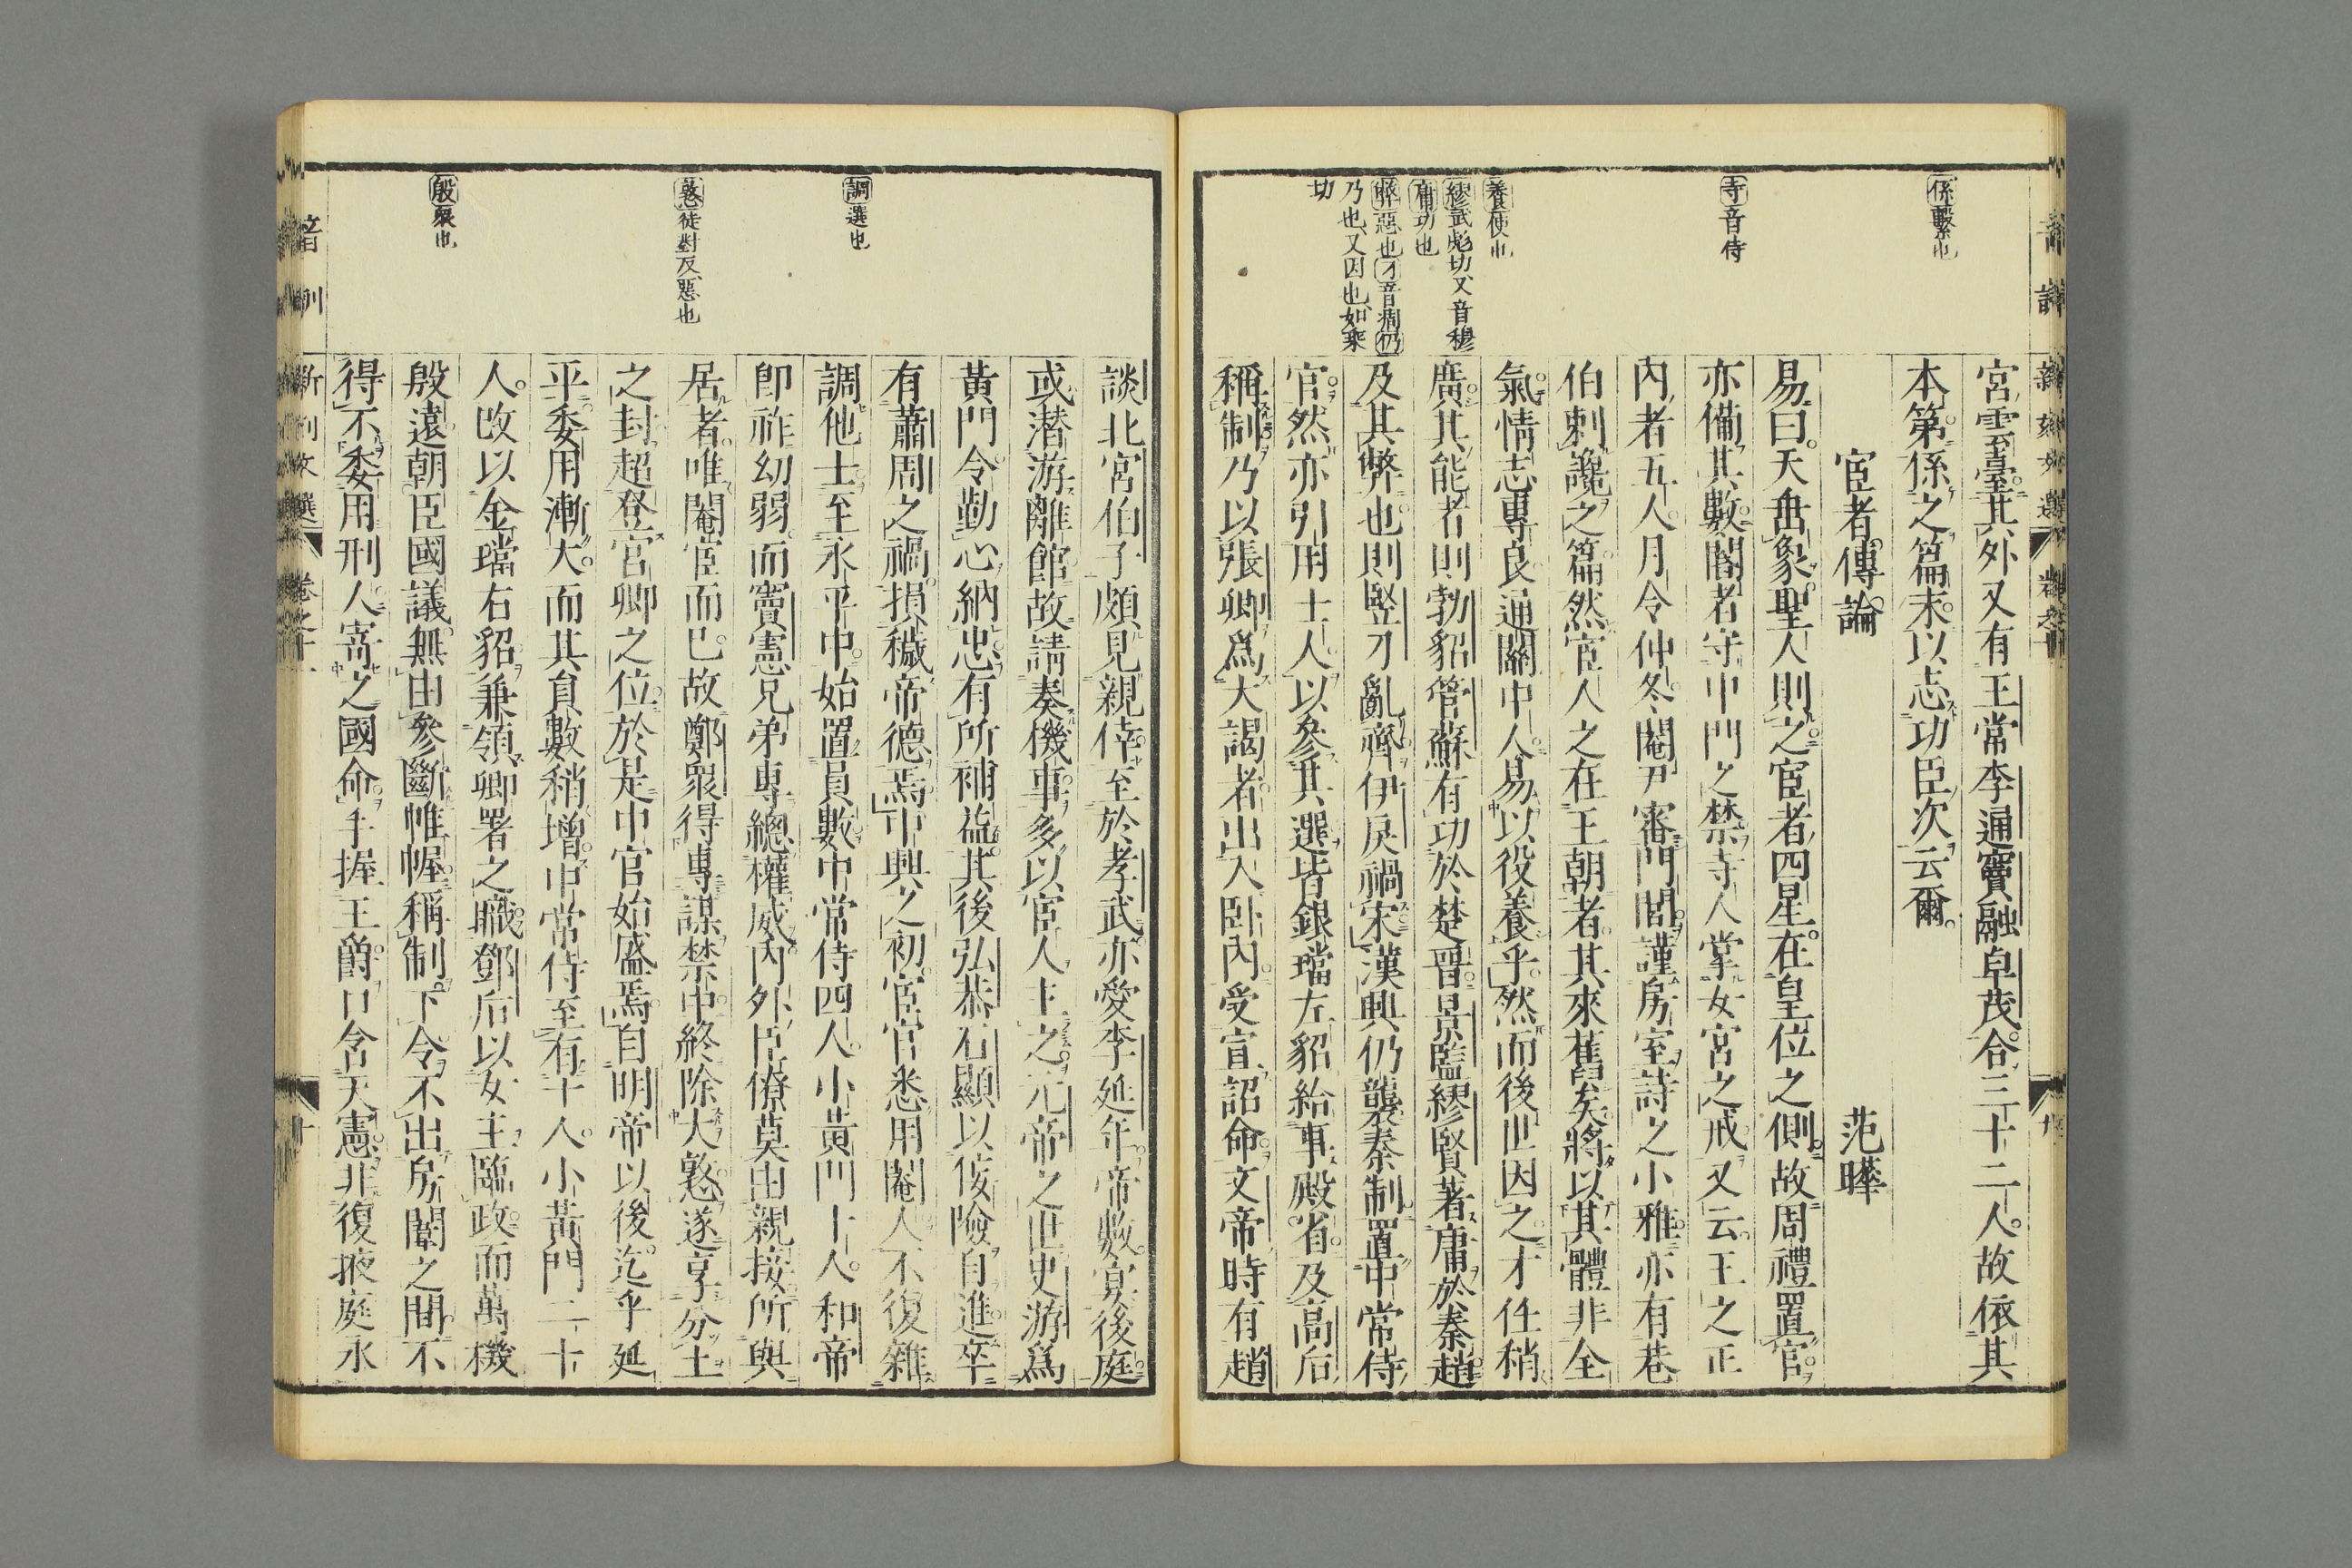 係繫也
寺音侍
養使也
繆武彪切、又音穆
庸功也
弊惡也刁音凋仍
乃也、又因也、如乘
切
宮雲臺其外又有王常李通竇融卓茂合三十二人。故依其
本第係之篇末以志功臣次云爾。
宦者傳論 范曄
易曰。天垂象聖人則之宦者四星在皇位之側。故周禮置官
亦備其數閽者守中門之禁寺人掌女宮之戒又云王之正
內者五人月令仲冬閹尹審門閭謹房室詩之小雅亦有巷
伯刺讒之篇然宦人之在王朝者其來舊矣將以其體非全
氣情志專良通關中人易以役養乎然而後世因之才任稍
廣其能者則勃貂管蘇有功於楚晉景監繆賢著庸於秦趙
及其弊也則豎刁亂齊伊戾禍宋漢興仍襲秦制置中常侍
官然亦引用士人以參其選皆銀璫左貂給事殿省及高后
稱制乃以張卿爲大謁者出入臥內受宣詔命文帝時有趙
調選也
憝徒對反、惡也
殷衆也
談北宮伯子頗見親倖至於孝武亦愛李延年帝數宴後庭
或潛游離館故請奏機事多以宦人主之元帝之世史游爲
黃門令勤心納忠有所補益其後弘恭石顯以佞險自進卒
有蕭周之禍損穢帝德焉中興之初宦官悉用閹人不復雜
調他士至永平中始置員數中常侍四人小黃門十人和帝
卽祚幼弱而竇憲兄弟專總權威內外臣僚莫由親接所與
居者唯閹宦而已故鄭衆得專謀禁中終除大憝遂享分土
之封超登宮卿之位於是中官始盛焉自明帝以後迄乎延
平委用漸大而其員數稍增中常侍至有十人小黃門二十
人。改以金璫右貂兼領卿署之職鄧后以女主臨政而萬機
殷遠朝臣國議無由參斷帷幄稱制下令不出房闈之間不
得不委用刑人寄之國命手握王爵口含天憲非復掖庭永